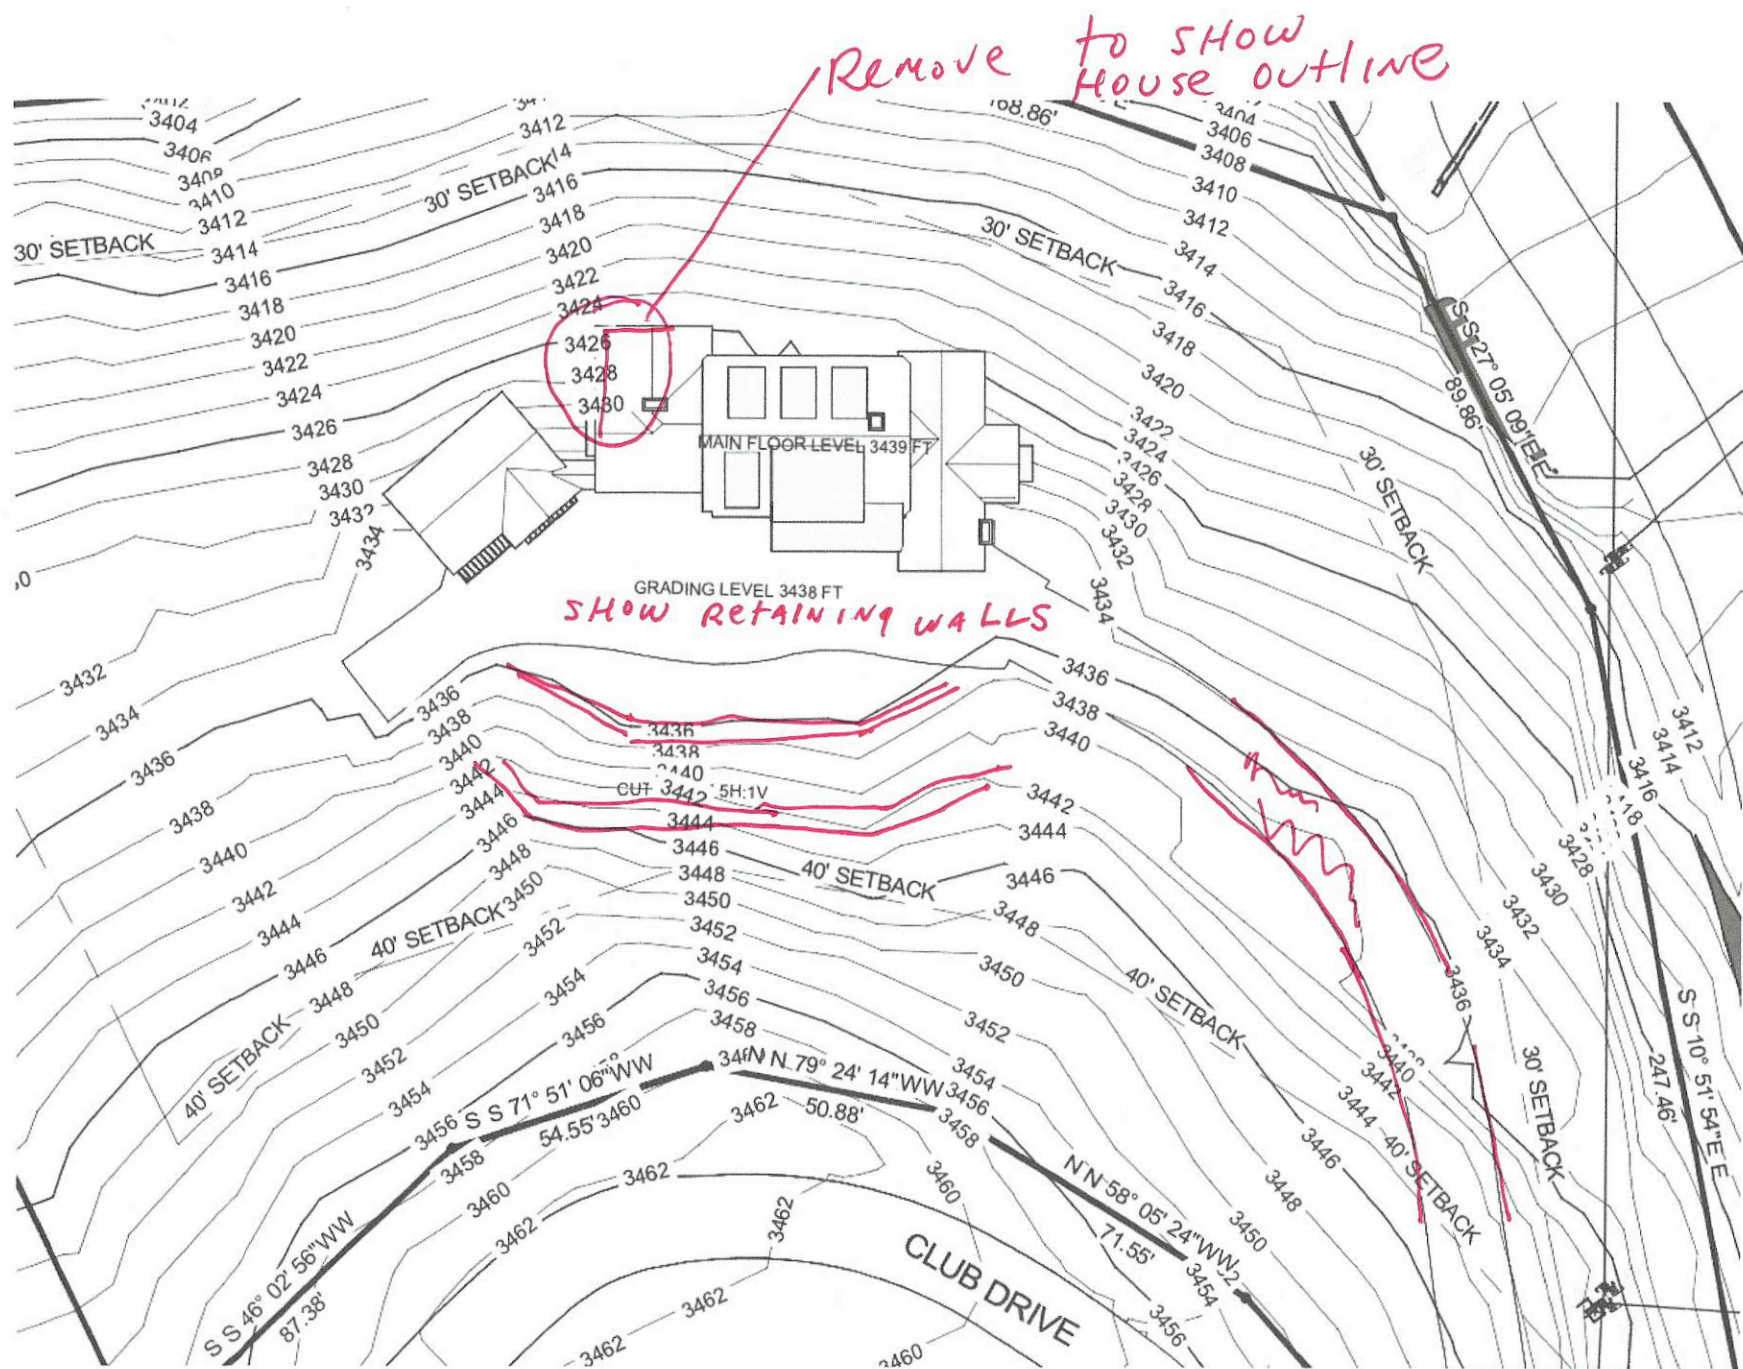 Remove to SHOW
HOUSE OUTLINE
3404
3406
3408
3410
3412
3414
3416
3418
3420
3422
3424
3426
3428
3430
3432
3434
30' SETBACK
30' SETBACK
3412
3416
3418
3420
3422
3424
3426
3428
3430
168.86'
3404
3406
3408
3410
3412
3414
3416
3418
3420
3422
3424
3426
3428
3430
3432
3434
30' SETBACK
S S 27° 05' 09"E E
89.86'
30' SETBACK
MAIN FLOOR LEVEL 3439 FT
GRADING LEVEL 3438 FT
SHOW RETAINING WALLS
3432
3434
3436
3438
3440
3442
3444
3446
3448
3450
3452
3454
3456
3458
3460
3462
3436
3438
3440
3442
3444
3446
3448
3450
3452
3454
3456
3436
3438
3442
CUT
5H:1V
3444
3446
3448
3450
3452
3454
3456
3458
3462
40' SETBACK
40' SETBACK
40' SETBACK
3436
3438
3440
3442
3444
3446
3448
3450
3452
3454
3456
3458
3460
40' SETBACK
3412
3414
3416
3428
3430
3432
3434
3436
3440
3442
3444
3446
3448
3450
3454
3456
40' SETBACK
30' SETBACK
S S 10° 51' 54"E E
247.46'
S S 71° 51' 06"WW
54.55'
3460
N N 79° 24' 14"WW
50.88'
N N 58° 05' 24"WW
71.55'
S S 46° 02' 56"WW
87.38'
3462
3462
3462
3462
3460
CLUB DRIVE